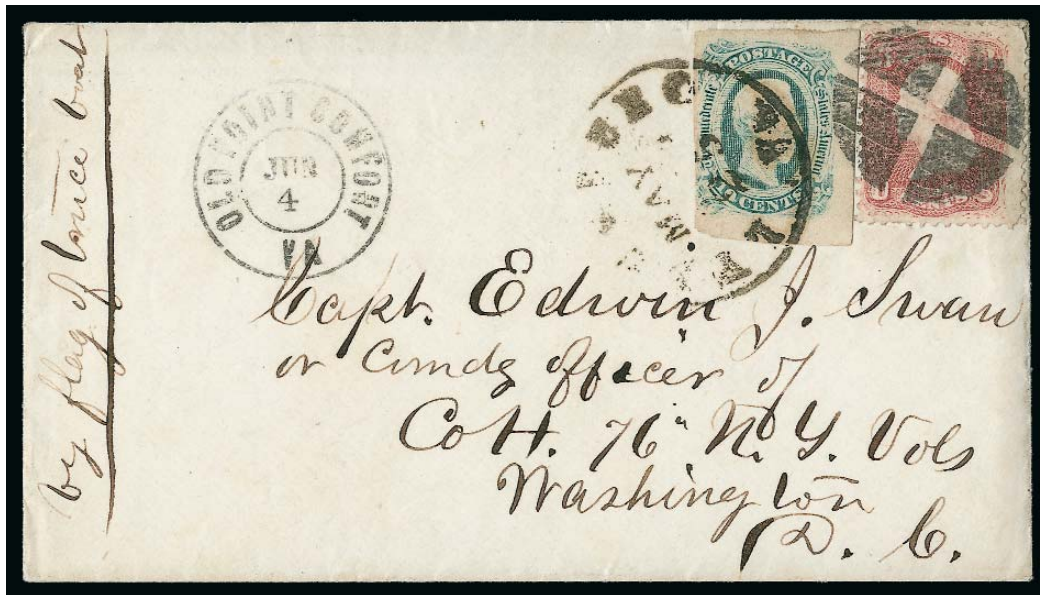 by flag of truce boat
OLD POINT COMFORT
JUN
4
VA
POSTAGE
MAY
CENTS
Capt. Edwin J. Swan
or Comdg officer of
Co H. 76" N. Y. Vols
Washington
D. C.